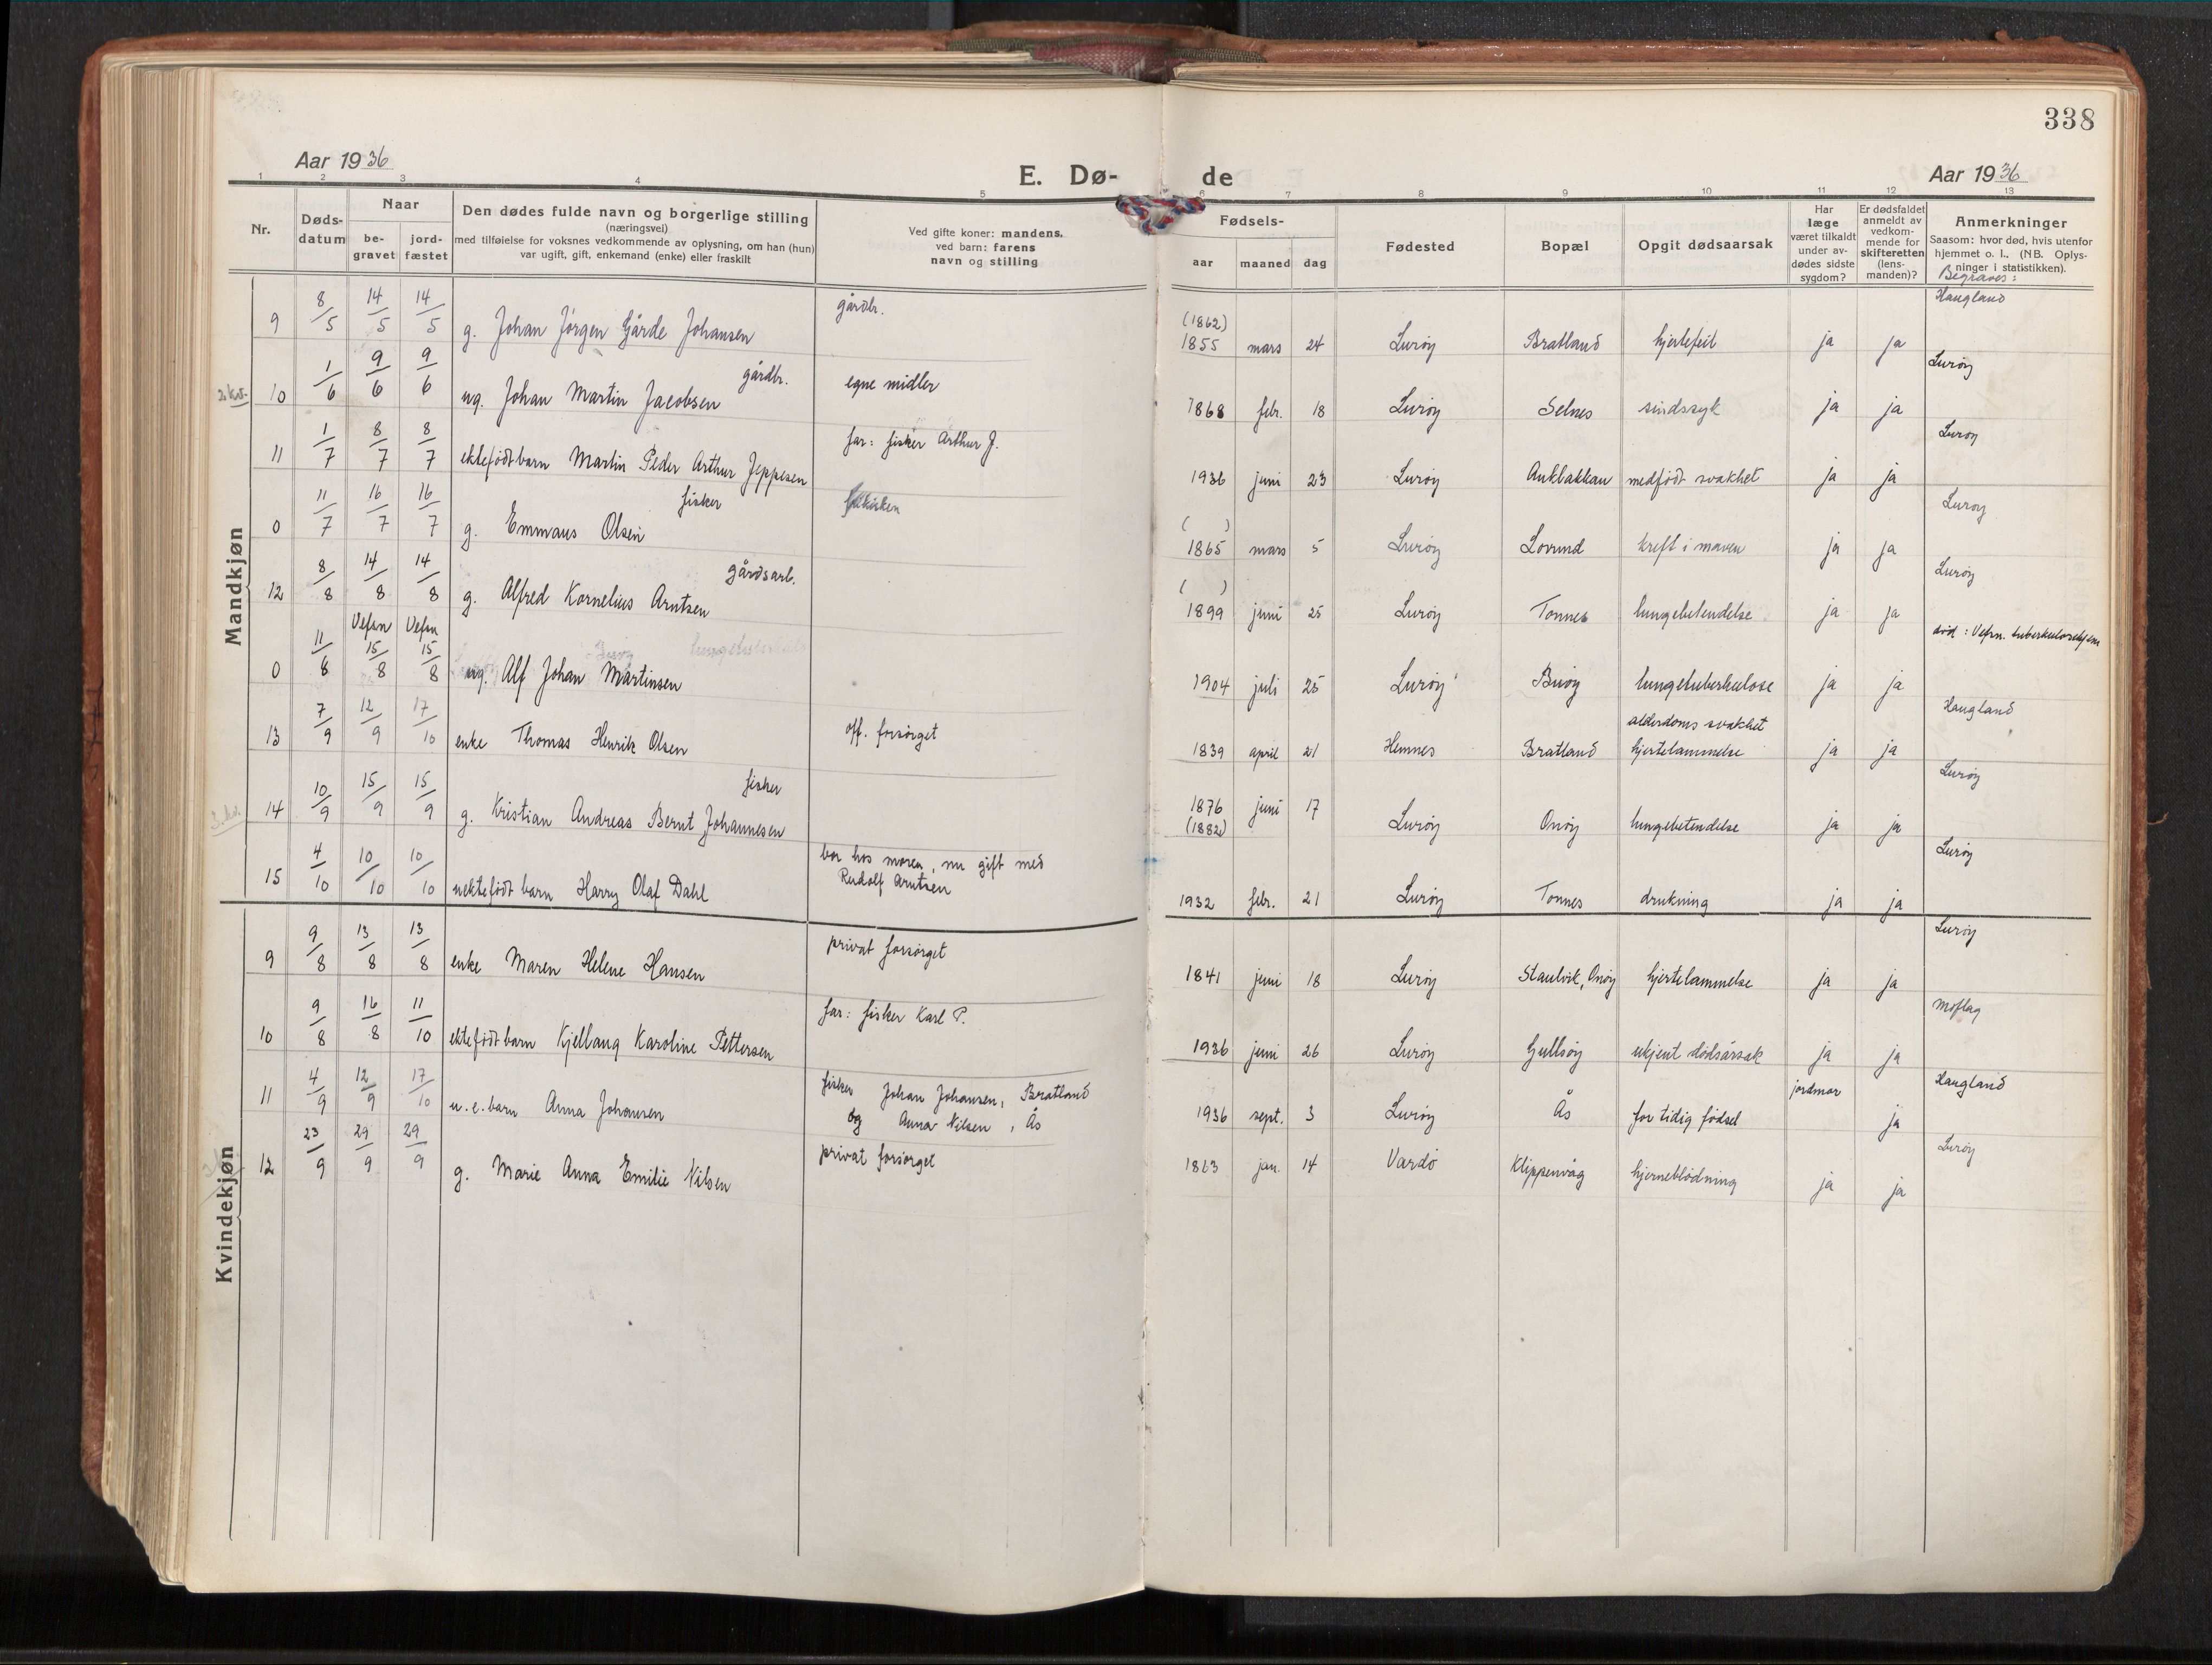 338
Aar 1936
E. Dø- de
Aar 1936
1 2 3 4 5 6 7 8 9 10 11 12 13
Nr.
Døds-
datum
Naar
be-
gravet
jord-
fæstet
Den dødes fulde navn og borgerlige stilling
(næringsvei)
med tilføielse for voksnes vedkommende av oplysning, om han (hun)
var ugift, gift, enkemand (enke) eller fraskilt
Ved gifte koner: mandens.
ved barn: farens
navn og stilling
Fødsels-
aar maaned dag
Fødested
Bopæl
Opgit dødsaarsak
Har
læge
været tilkaldt
under av-
dødes sidste
sygdom?
Er dødsfaldet
anmeldt av
vedkom-
mende for
skifteretten
(lens-
manden)?
Anmerkninger
Saasom: hvor død, hvis utenfor
hjemmet o. l., (NB. Oplys-
ninger i statistikken).
Begraves:
Mandkjøn
9 8/5 14/5 14/5 g. Johan Jørgen Gårde Johansen gårdbr. (1862) 1855 mars 24 Lurøy Bratland hjertefeil ja ja Haugland
2. kv. 10 1/6 9/6 9/6 ug. Johan Martin Jacobsen gårdbr. egne midler 1868 febr. 18 Lurøy Selnes sindssyk ja ja Lurøy
11 1/7 8/7 8/7 ektefødt barn Martin Peder Arthur Jeppesen far: fisker Arthur J. 1936 juni 23 Lurøy medfødt svakhet ja ja Lurøy
0 11/7 16/7 16/7 g. Emmaus Olsen fisker frikirken ( ) 1865 mars 5 Lurøy Lovund kreft i maven ja ja Lurøy
12 8/8 14/8 14/8 g. Alfred Kornelius Arntsen gårdsarb. ( ) 1899 juni 25 Lurøy Tonnes lungebetendelse ja ja Lurøy
0 11/8 Vefsn 15/8 Vefsn 15/8 ug. Alf Johan Martinsen 1904 juli 25 Lurøy Buøy lungetuberkulose ja ja død: Vefsn. tuberkulosehjem
13 7/9 12/9 17/10 enke Thomas Henrik Olsen off. forsørget 1839 april 21 Hemnes Bratland alderdoms svakhet hjertelammelse ja ja Haugland
14 10/9 15/9 15/9 g. Kristian Andreas Bernt Johannesen fisker 1876 (1882) juni 17 Lurøy Onøy lungebetendelse ja ja Lurøy
15 4/10 10/10 10/10 uektefødt barn Harry Olaf Dahl bor hos moren, nu gift med Rudolf Arntsen 1932 febr. 21 Lurøy Tonnes drukning ja ja Lurøy
Kvindekjøn
9 9/8 13/8 13/8 enke Maren Helene Hansen privat forsørget 1841 juni 18 Lurøy Staulvik, Onøy hjertelammelse ja ja Lurøy
10 9/8 16/8 11/10 ektefødt barn Kjellaug Karoline Pettersen far: fisker Karl P. 1936 juni 26 Lurøy Gullsøy ukjent dødsårsak ja ja Moflag
11 4/9 12/9 17/10 u. e. barn Anna Johansen fisker Johan Johansen, Bratland og Anna Nilsen, Ås 1936 sept. 3 Lurøy Ås for tidig fødsel jordmor ja Haugland
12 23/9 29/9 29/9 g. Marie Anna Emilie Nilsen privat forsørget 1863 jan. 14 Vardø Klippenvåg hjerneblødning ja ja Lurøy